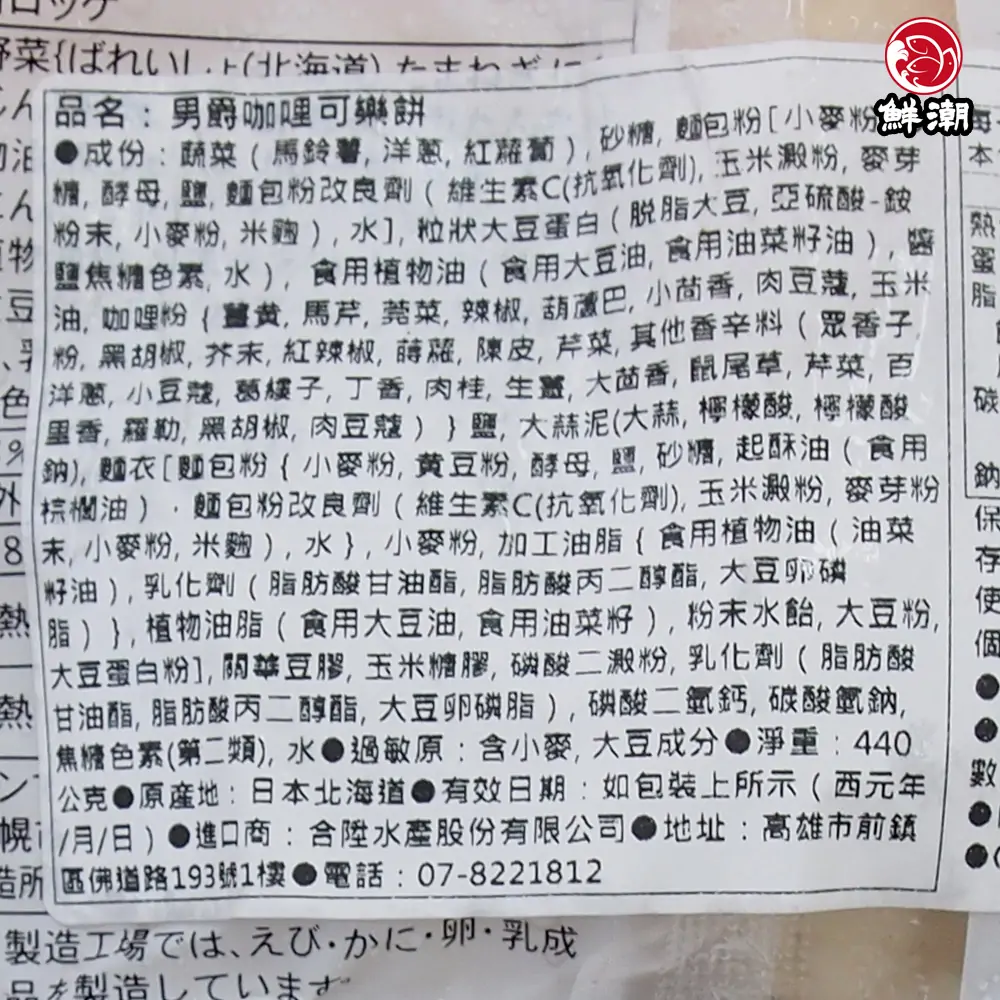 コロッケ
野菜{ばれいしょ(北海道)、たまねぎ、に
鮮潮
品名：男爵咖哩可樂餅
●成份：蔬菜(馬鈴薯,洋蔥,紅蘿蔔),砂糖,麵包粉[小麥粉
糖,酵母,鹽,麵包粉改良劑(維生素C(抗氧化劑),玉米澱粉,麥芽
粉末,小麥粉,米麴),水],粒狀大豆蛋白(脫脂大豆,亞硫酸-銨
鹽焦糖色素,水),食用植物油(食用大豆油,食用油菜籽油),醬
油,咖哩粉{薑黃,馬芹,莞菜,辣椒,葫蘆巴,小茴香,肉豆蔻,玉米
粉,黑胡椒,芥末,紅辣椒,蒔蘿,陳皮,芹菜,其他香辛料(眾香子,
洋蔥,小豆蔻,葛縷子,丁香,肉桂,生薑,大茴香,鼠尾草,芹菜,百
里香,羅勒,黑胡椒,肉豆蔻)}鹽,大蒜泥(大蒜,檸檬酸,檸檬酸
鈉),麵衣[麵包粉{小麥粉,黃豆粉,酵母,鹽,砂糖,起酥油(食用
棕櫚油)，麵包粉改良劑(維生素C(抗氧化劑),玉米澱粉,麥芽粉
末,小麥粉,米麴),水},小麥粉,加工油脂{食用植物油(油菜
籽油),乳化劑(脂肪酸甘油酯,脂肪酸丙二醇酯,大豆卵磷
脂)},植物油脂(食用大豆油,食用油菜籽),粉末水飴,大豆粉,
大豆蛋白粉],關華豆膠,玉米糖膠,磷酸二澱粉,乳化劑(脂肪酸
甘油酯,脂肪酸丙二醇酯,大豆卵磷脂),磷酸二氫鈣,碳酸氫鈉,
焦糖色素(第二類),水●過敏原：含小麥,大豆成分●淨重：440
公克●原產地：日本北海道●有效日期：如包裝上所示(西元年
/月/日)●進口商：合陞水產股份有限公司●地址：高雄市前鎮
區佛道路193號1樓●電話：07-8221812
每
本
熱
蛋
脂
碳
鈉
保
存
使
個
●
●
數
●
●
製造工場では、えび・かに・卵・乳成
品を製造しています